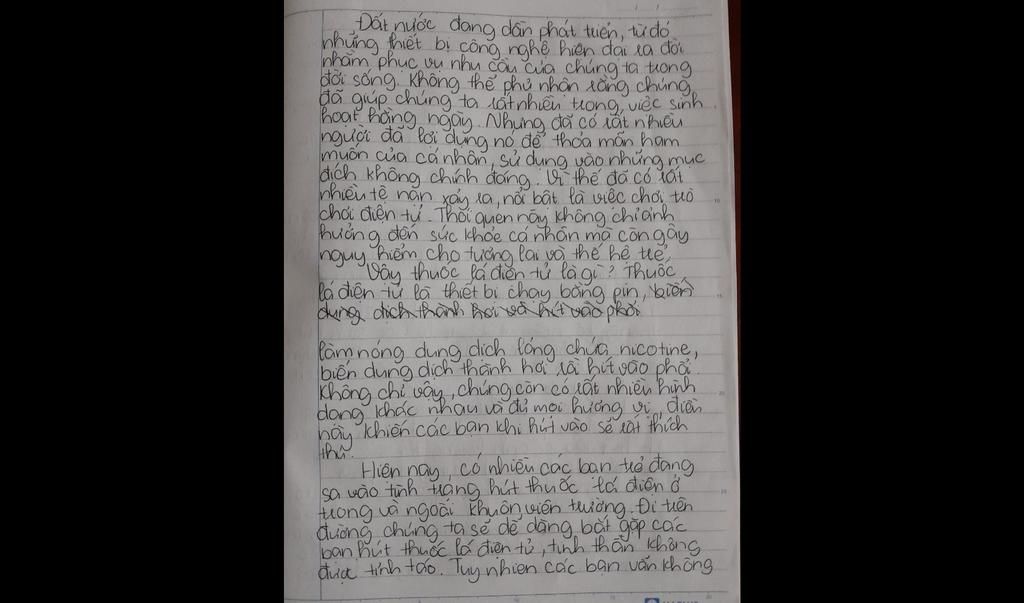 Đất nước đang dần phát triển, từ đó
những thiết bị công nghệ hiện đại ra đời
nhằm phục vụ nhu cầu của chúng ta trong
đời sống. Không thể phủ nhận rằng chúng
đã giúp chúng ta rất nhiều trong việc sinh
hoạt hằng ngày. Nhưng đã có rất nhiều
người đã lợi dụng nó để thỏa mãn ham
muốn của cá nhân, sử dụng vào những mục
đích không chính đáng. Vì thế đã có rất
nhiều tệ nạn xảy ra, nổi bật là việc chơi trò
chơi điện tử. Thói quen này không chỉ ảnh
hưởng đến sức khỏe cá nhân mà còn gây
nguy hiểm cho tương lai và thế hệ trẻ.
Vậy thuốc lá điện tử là gì? Thuốc
lá điện tử là thiết bị chạy bằng pin, biến
dung dịch thành hơi và hít vào phổi
làm nóng dung dịch lỏng chứa nicotine,
biến dung dịch thành hơi rồi hít vào phổi.
Không chỉ vậy, chúng còn có rất nhiều hình
dạng khác nhau và đủ mọi hương vị, điều
này khiến các bạn khi hút vào sẽ rất thích
thú.
Hiện nay, có nhiều các bạn trẻ đang
sa vào tình trạng hút thuốc lá điện ở
trong và ngoài khuôn viên trường. Đi trên
đường chúng ta sẽ dễ dàng bắt gặp các
bạn hút thuốc lá điện tử, tinh thần không
được tỉnh táo. Tuy nhiên các bạn vẫn không